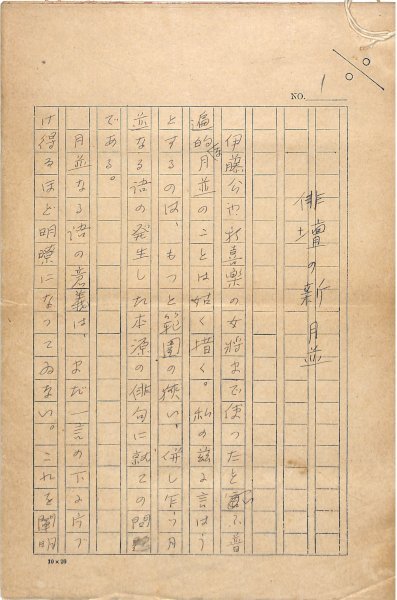 NO. 1
俳壇の新月並
伊藤公や打喜楽の女将まで使つたと云ふ普
遍的な月並のことは姑く措く。私の茲に言はう
とするのは、もつと範囲の狭い、併し乍ら月
並なる語の発生した本源の俳句に就ての問
である。
月並なる語の意義は、まだ一言の下に片づ
け得るほど明瞭になつてゐない。これを闡明
10×20